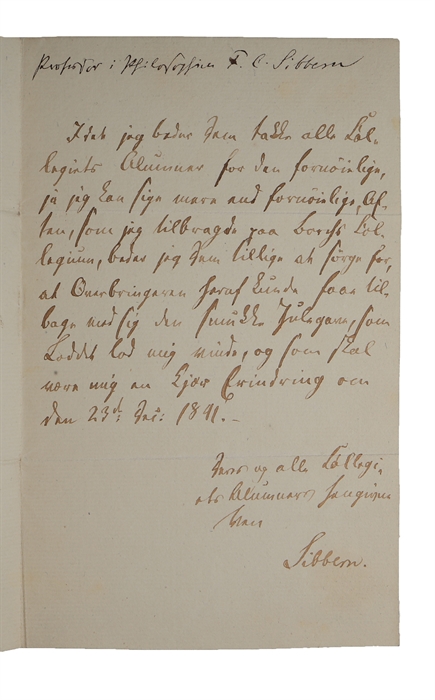 Professor i Philosophien F. C. Sibbern
Idet jeg beder Dem takke alle Col-
legiets Alumner for den fornøielige,
ja jeg kan sige mere end fornøielige, Af-
ten, som jeg tilbragde paa Borchs Col-
legium, beder jeg Dem tillige at sørge for,
at Overbringeren heraf kunde faae til-
bage med sig den smukke Julegave, som
Loddet lod mig vinde, og som skal
være mig en kjær Erindring om
den 23d: Dec: 1841. –
Deres og alle Collegi-
ets Alumners hengivne
Ven
Sibbern.